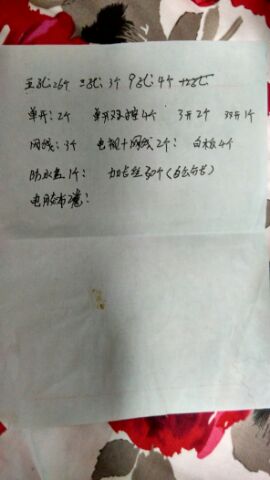 五孔26个 三孔3个 9孔4个 十孔
单开:2个 单开双控4个 3开2个 双开1个
网线:3个 电视+网线2个: 白板4个
防水盒1个: 加长丝30个
电脑